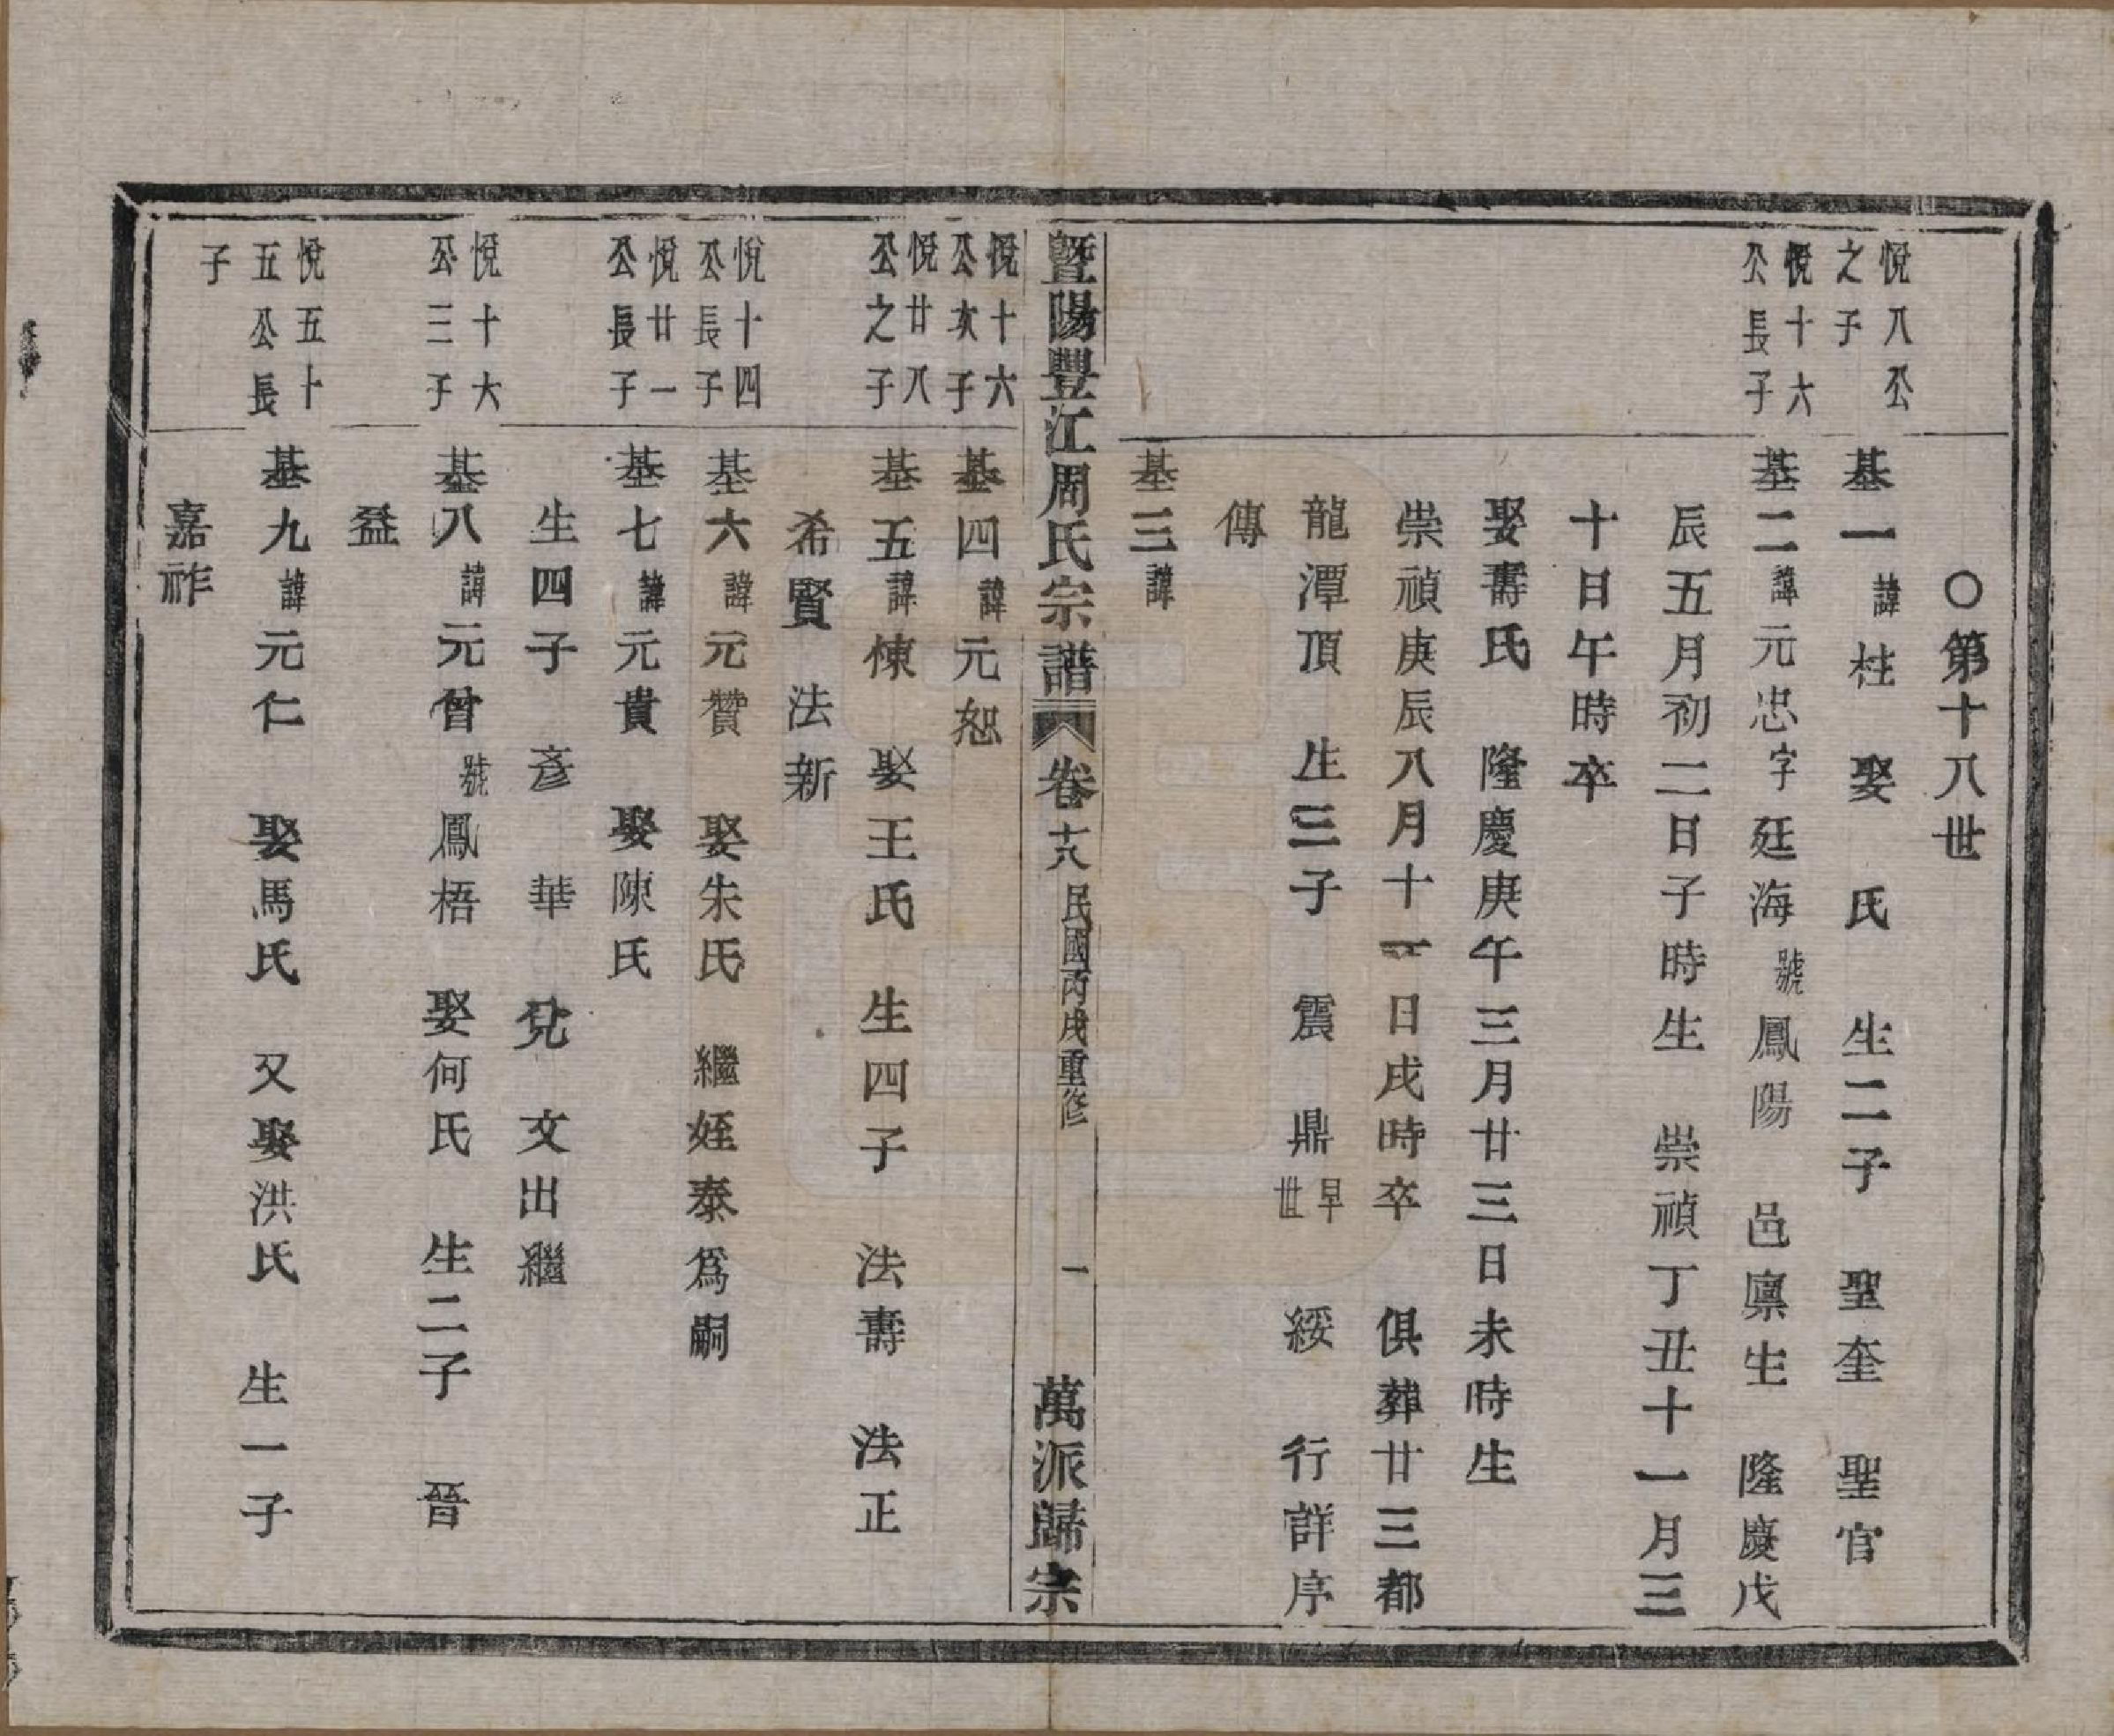 ○第十八世
悅八公
之子
基一諱柱 娶 氏 生二子 聖奎 聖官
悅十六
公長子
基二諱元忠字廷海號鳳陽 邑廪生 隆慶戊
辰五月初二日子時生 崇禎丁丑十一月三
十日午時卒
娶壽氏 隆慶庚午三月廿三日未時生
崇禎庚辰八月十一日戌時卒 俱葬廿三都
龍潭頂 生三子 震 鼎早世 綏 行詳序
傳
基三諱
暨陽豐江周氏宗譜 卷十八 民國丙戌重修 一 萬派歸宗
悅十六
公次子
基四諱元恕
悅廿八
公之子
基五諱棟 娶王氏 生四子 法壽 法正
希賢 法新
悅十四
公長子
基六諱元贊 娶朱氏 繼姪泰爲嗣
悅廿一
公長子
基七諱元貴 娶陳氏
生四子 彥 華 兊 文出繼
悅十六
公三子
基八諱元曾號鳳梧 娶何氏 生二子 晉
益
悅五十
五公長
子
基九諱元仁 娶馬氏 又娶洪氏 生一子
嘉祚